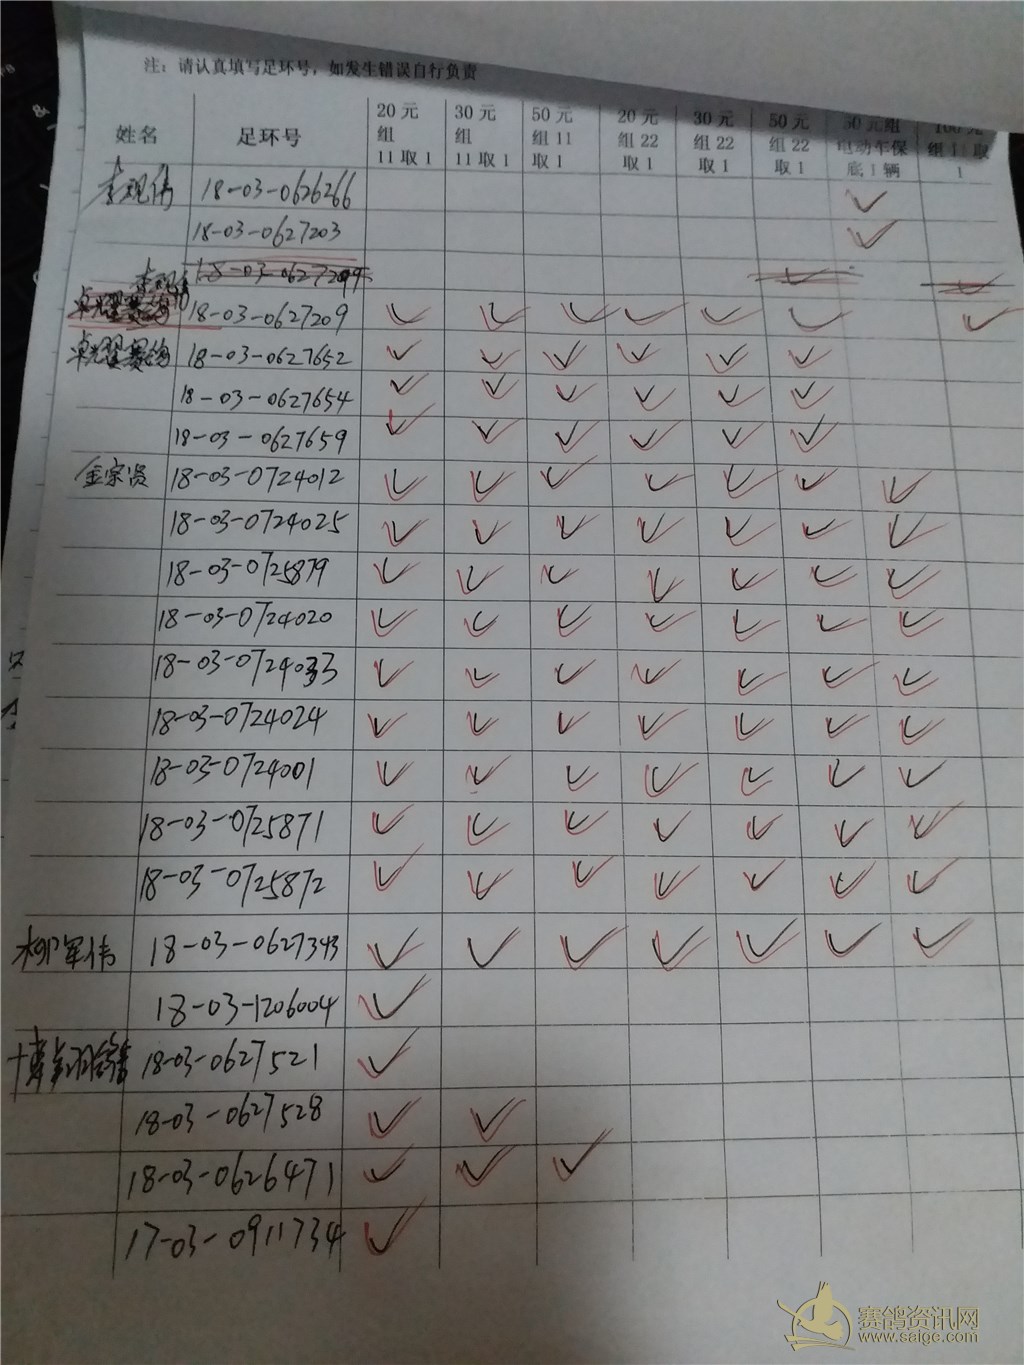 注：请认真填写足环号，如发生错误自行负责
姓名 足环号 20元组11取1 30元组11取1 50元组11取1 20元组22取1 30元组22取1 50元组22取1 50元组电动车保底1辆 100元组11取1
18-03-0626266 ✓
18-03-0627203 ✓
18-03-0627209 ✓ ✓ ✓ ✓ ✓ ✓ ✓
18-03-0627652 ✓ ✓ ✓ ✓ ✓ ✓
18-03-0627654 ✓ ✓ ✓ ✓ ✓ ✓
18-03-0627659 ✓ ✓ ✓ ✓ ✓ ✓
金宗贤 18-03-0724012 ✓ ✓ ✓ ✓ ✓ ✓ ✓
18-03-0724025 ✓ ✓ ✓ ✓ ✓ ✓ ✓
18-03-0725879 ✓ ✓ ✓ ✓ ✓ ✓ ✓
18-03-0724020 ✓ ✓ ✓ ✓ ✓ ✓ ✓
18-03-0724033 ✓ ✓ ✓ ✓ ✓ ✓ ✓
18-03-0724024 ✓ ✓ ✓ ✓ ✓ ✓ ✓
18-03-0724001 ✓ ✓ ✓ ✓ ✓ ✓ ✓
18-03-0725871 ✓ ✓ ✓ ✓ ✓ ✓ ✓
18-03-0725872 ✓ ✓ ✓ ✓ ✓ ✓ ✓
柳军伟 18-03-0627343 ✓ ✓ ✓ ✓ ✓ ✓ ✓
18-03-1206004 ✓
18-03-0627521 ✓
18-03-0627528 ✓ ✓
18-03-0626471 ✓ ✓ ✓
17-03-0911734 ✓
赛鸽资讯网
www.saige.com